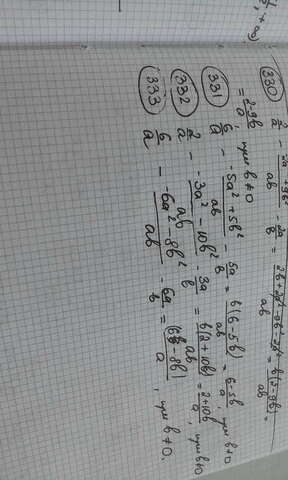 ; +∞)
330 2/a - (-2a²+9b²)/ab - 2a/b = (2b+2a²-9b²-2a²)/ab = b(2-9b)/ab =
= (2-9b)/a, при b≠0
331 6/a - (-5a²+5b²)/ab - 5a/b = b(6-5b)/ab = (6-5b)/a, при b≠0
332 2/a - (-3a²-10b²)/ab - 3a/b = b(2+10b)/ab = (2+10b)/a, при b≠0
333 6/a - (-6a²-8b²)/ab - 6a/b = -8b)/a, при b≠0.